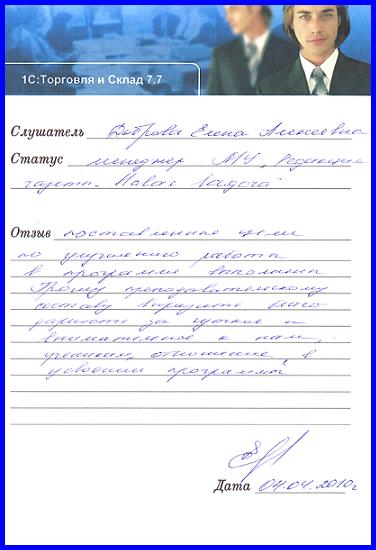 1С:Торговля и Склад 7.7
Слушатель Доброва Елена Алексеевна
Статус менеджер МУ „Редакция
газеты „Новая Ладога"
Отзыв поставленные цели
по улучшению работы
в программе выполнены
Прошу преподавательскому
составу выразить благо-
дарность за чуткое и
внимательное к нам,
ученикам, отношение, в
усвоении программы
Дата 04.04.2010г